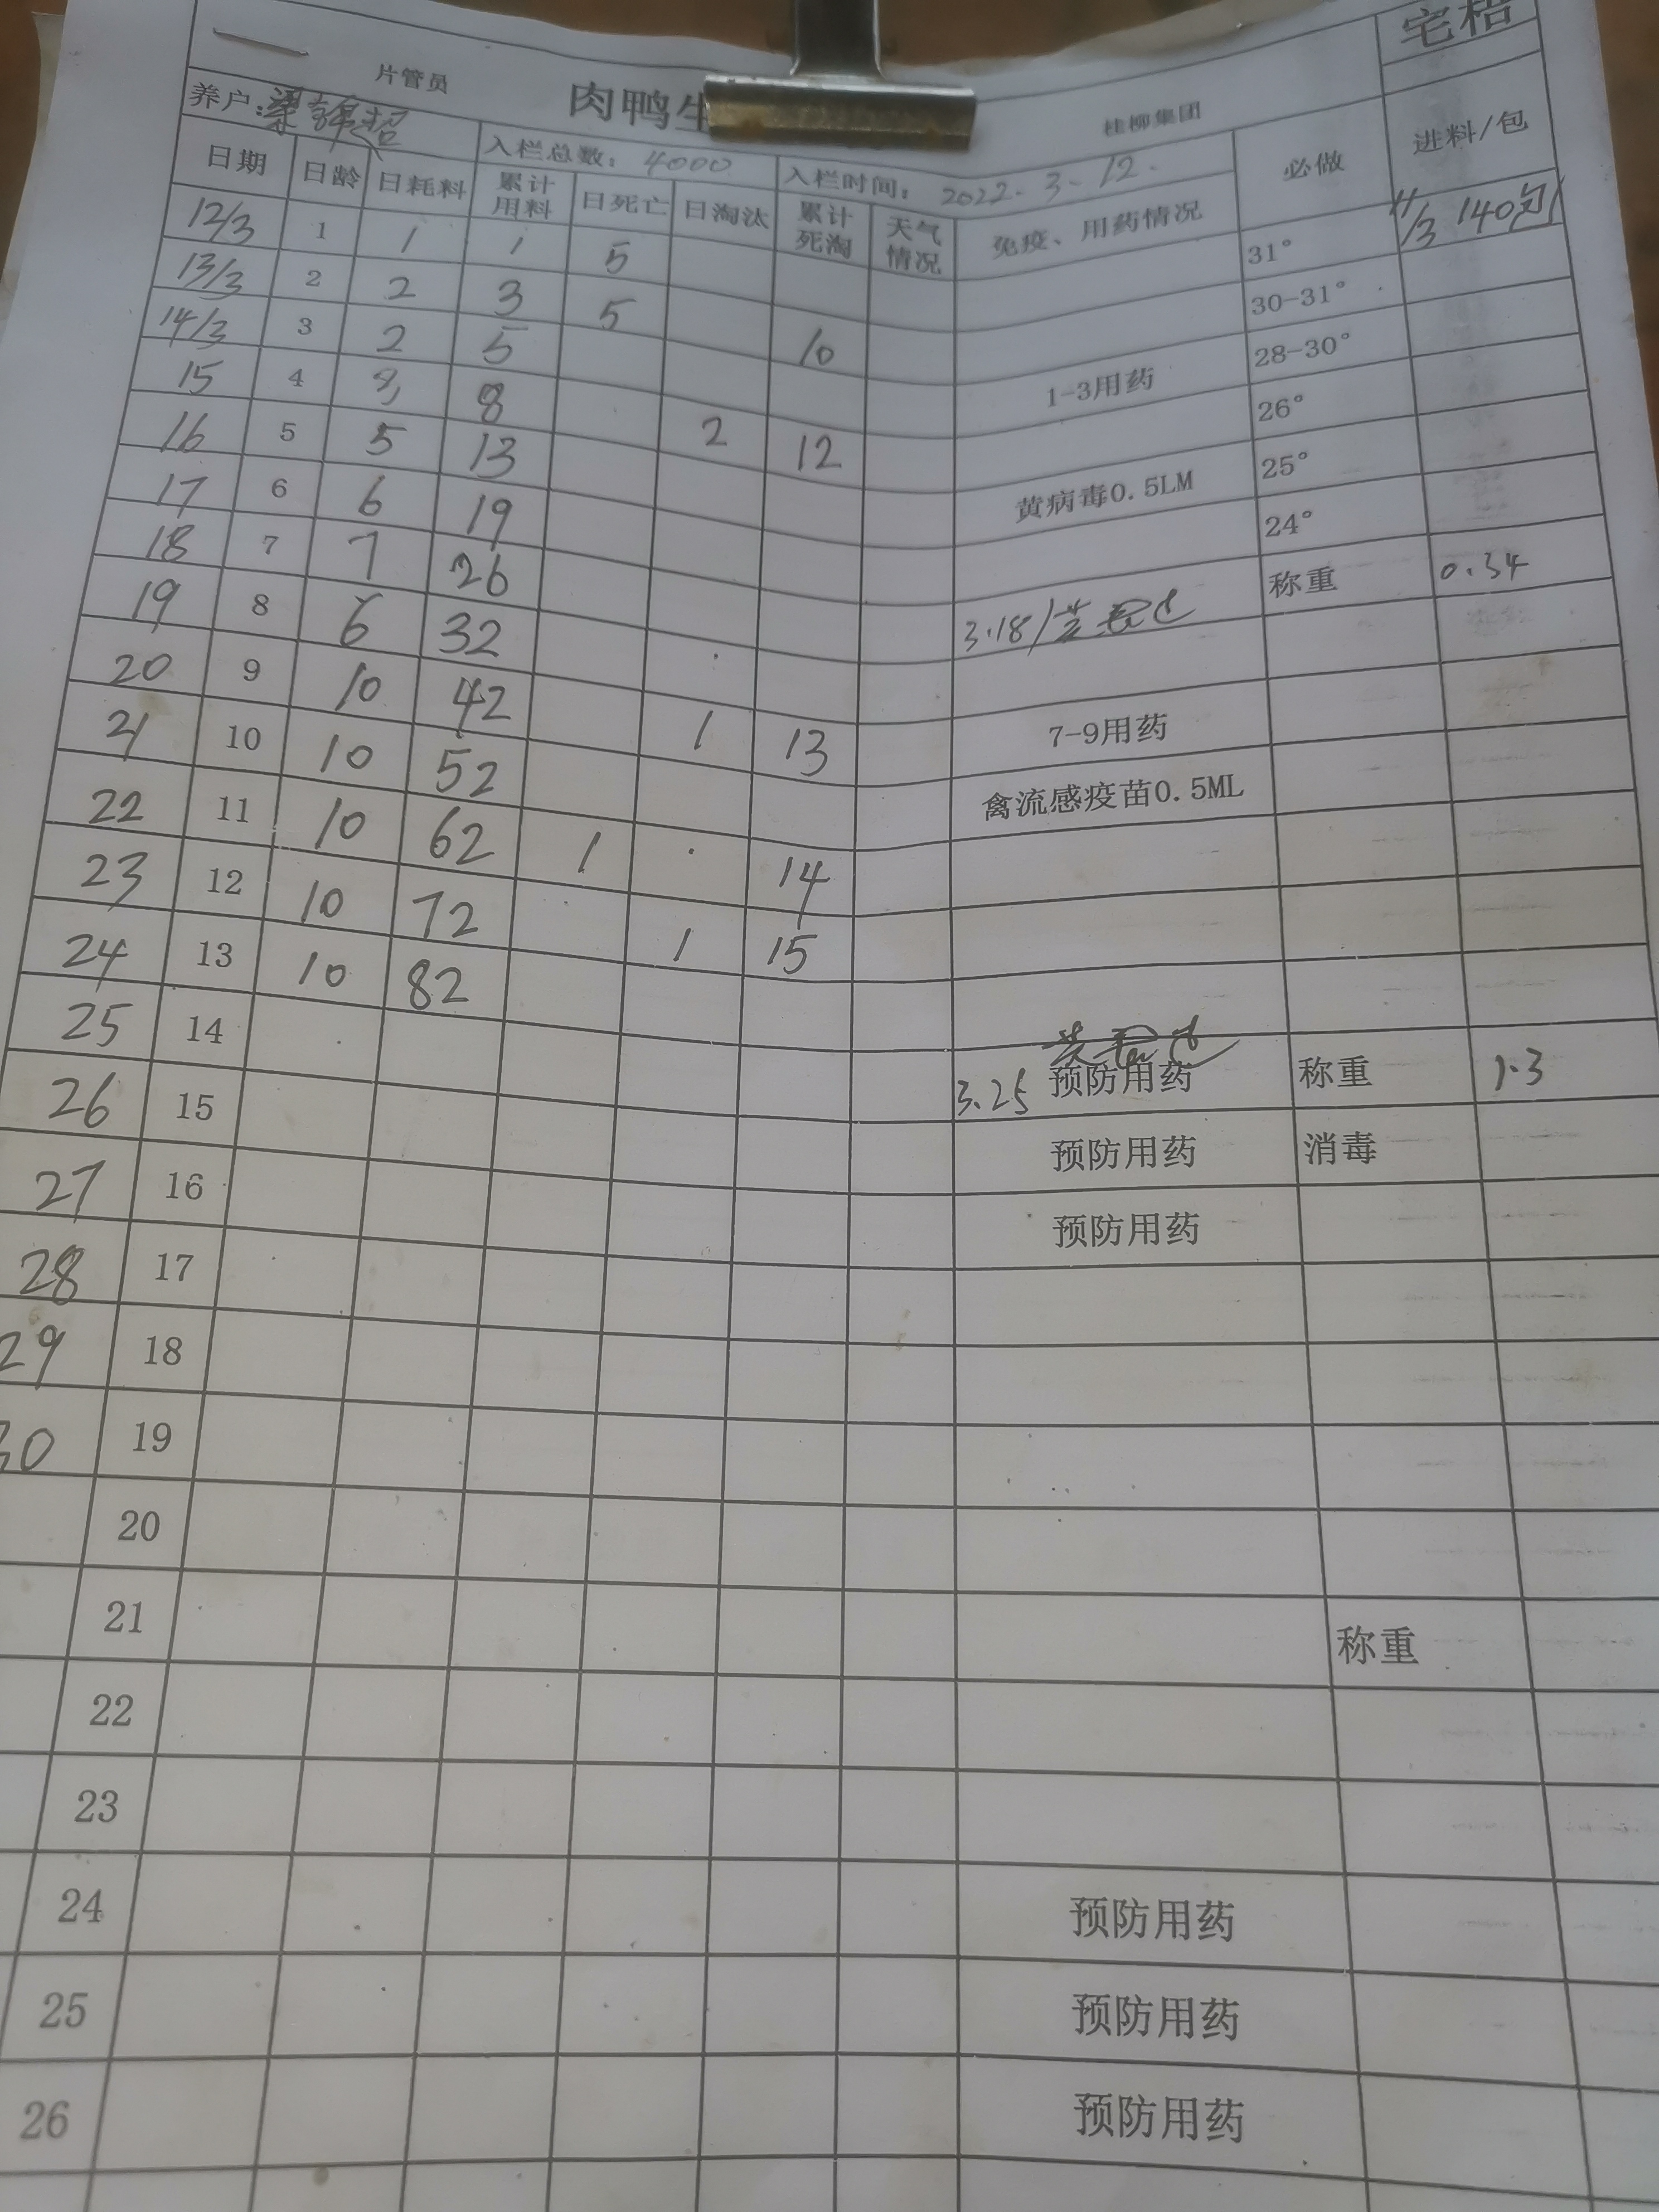 宅梧
片管员 肉鸭 桂柳集团
养户: 梁锦超 入栏总数: 4000 入栏时间: 2022.3.12. 必做 进料/包
日期 日龄 日耗料 累计用料 日死亡 日淘汰 累计死淘 天气情况 免疫、用药情况
12/3 1 1 1 5 31° 11/3 140包
13/3 2 2 3 5 30-31°
14/3 3 2 5 10 1-3用药 28-30°
15 4 3 8 26°
16 5 5 13 2 12 黄病毒0.5LM 25°
17 6 6 19 24°
18 7 7 26 3.18/ 称重 0.34
19 8 6 32
20 9 10 42 1 13 7-9用药
21 10 10 52 禽流感疫苗0.5ML
22 11 10 62 1 14
23 12 10 72 1 15
24 13 10 82
25 14 3.25 预防用药 称重 1.3
26 15 预防用药 消毒
27 16 预防用药
28 17
29 18
30 19
20
21 称重
22
23
24 预防用药
25 预防用药
26 预防用药